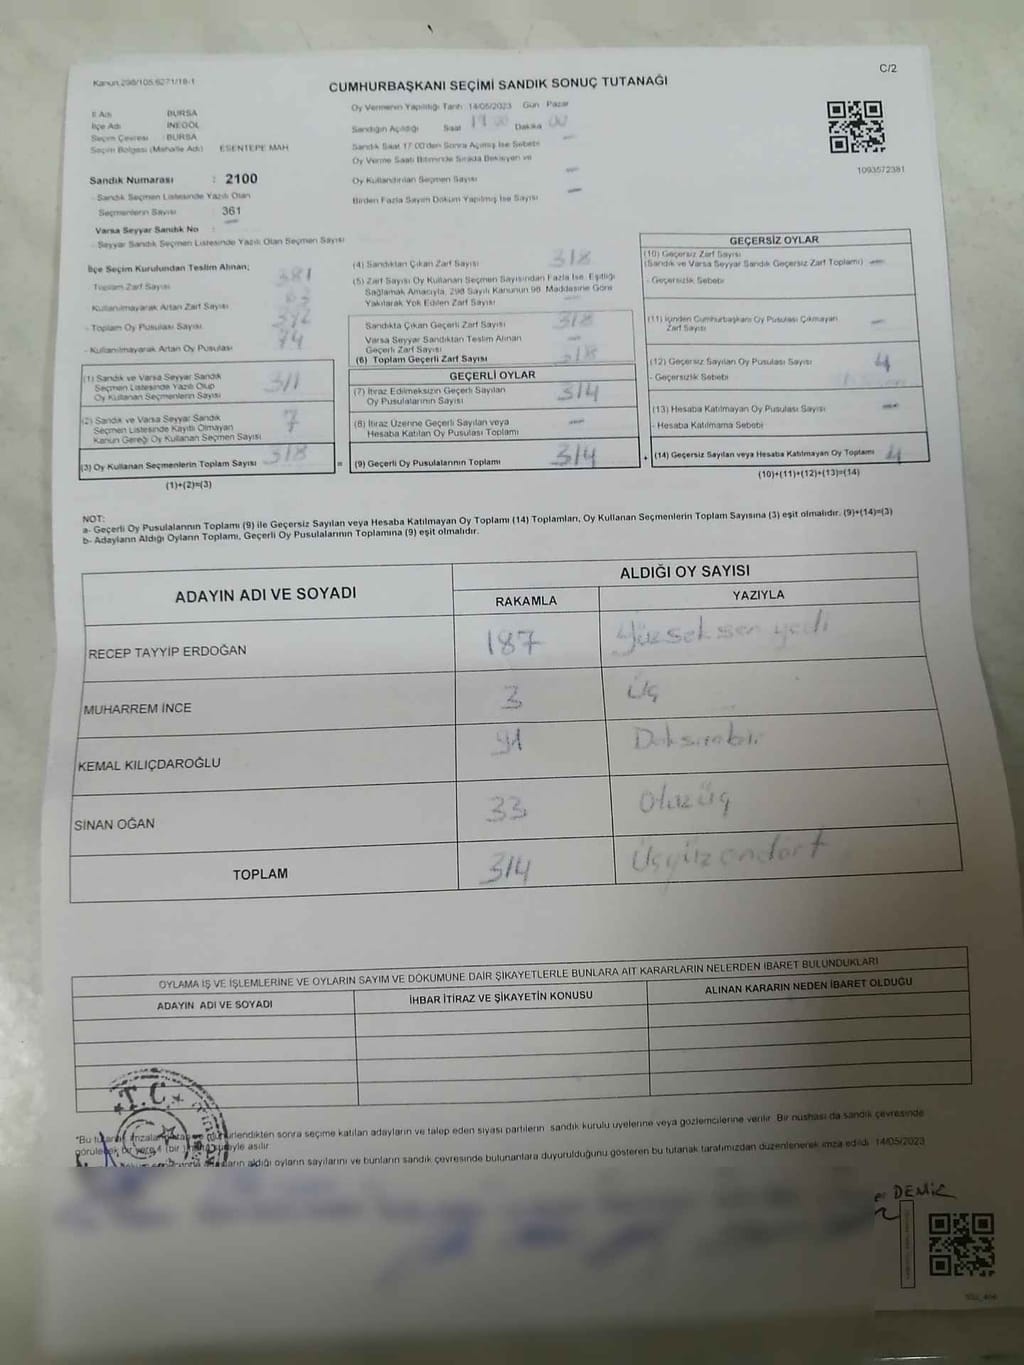 Kanun 298/105,6271/18-1
C/2
CUMHURBAŞKANI SEÇİMİ SANDIK SONUÇ TUTANAĞI
İl Adı BURSA
İlçe Adı İNEGÖL
Seçim Çevresi : BURSA
Seçim Bölgesi (Mahalle Adı) ESENTEPE MAH
Sandık Numarası : 2100
- Sandık Seçmen Listesinde Yazılı Olan
Seçmenlerin Sayısı : 361
Varsa Seyyar Sandık No :
- Seyyar Sandık Seçmen Listesinde Yazılı Olan Seçmen Sayısı
Oy Vermenin Yapıldığı Tarih 14/05/2023 Gün Pazar
Sandığın Açıldığı Saat Dakika 00
Sandık Saat 17:00'den Sonra Açılmış İse Sebebi
Oy Verme Saati Bitiminde Sırada Bekleyen ve
Oy Kullandırılan Seçmen Sayısı
Birden Fazla Sayım Döküm Yapılmış İse Sayısı
1093572381
İlçe Seçim Kurulundan Teslim Alınan;
Toplam Zarf Sayısı 381
Kullanılmayarak Artan Zarf Sayısı 63
- Toplam Oy Pusulası Sayısı
- Kullanılmayarak Artan Oy Pusulası 74
(1) Sandık ve Varsa Seyyar Sandık
Seçmen Listesinde Yazılı Olup
Oy Kullanan Seçmenlerin Sayısı 311
(2) Sandık ve Varsa Seyyar Sandık
Seçmen Listesinde Kayıtlı Olmayan
Kanun Gereği Oy Kullanan Seçmen Sayısı 7
(3) Oy Kullanan Seçmenlerin Toplam Sayısı 318
(1)+(2)=(3)
(4) Sandıktan Çıkan Zarf Sayısı 318
(5) Zarf Sayısı Oy Kullanan Seçmen Sayısından Fazla İse, Eşitliği
Sağlamak Amacıyla, 298 Sayılı Kanunun 98. Maddesine Göre
Yakılarak Yok Edilen Zarf Sayısı
Sandıkta Çıkan Geçerli Zarf Sayısı 318
Varsa Seyyar Sandıktan Teslim Alınan
Geçerli Zarf Sayısı
(6) Toplam Geçerli Zarf Sayısı 318
GEÇERLİ OYLAR
(7) İtiraz Edilmeksizin Geçerli Sayılan
Oy Pusulalarının Sayısı 314
(8) İtiraz Üzerine Geçerli Sayılan veya
Hesaba Katılan Oy Pusulası Toplamı
= (9) Geçerli Oy Pusulalarının Toplamı 314
GEÇERSİZ OYLAR
(10) Geçersiz Zarf Sayısı
(Sandık ve Varsa Seyyar Sandık Geçersiz Zarf Toplamı)
- Geçersizlik Sebebi
(11) İçinden Cumhurbaşkanı Oy Pusulası Çıkmayan
Zarf Sayısı
(12) Geçersiz Sayılan Oy Pusulası Sayısı 4
- Geçersizlik Sebebi
(13) Hesaba Katılmayan Oy Pusulası Sayısı
- Hesaba Katılmama Sebebi
+ (14) Geçersiz Sayılan veya Hesaba Katılmayan Oy Toplamı 4
(10)+(11)+(12)+(13)=(14)
NOT:
a- Geçerli Oy Pusulalarının Toplamı (9) ile Geçersiz Sayılan veya Hesaba Katılmayan Oy Toplamı (14) Toplamları, Oy Kullanan Seçmenlerin Toplam Sayısına (3) eşit olmalıdır. (9)+(14)=(3)
b- Adayların Aldığı Oyların Toplamı, Geçerli Oy Pusulalarının Toplamına (9) eşit olmalıdır.
ADAYIN ADI VE SOYADI
ALDIĞI OY SAYISI
RAKAMLA YAZIYLA
RECEP TAYYİP ERDOĞAN 187 Yüzseksenyedi
MUHARREM İNCE 3 Üç
KEMAL KILIÇDAROĞLU 91 Doksanbir
SİNAN OĞAN 33 Otuzüç
TOPLAM 314 Üçyüzondört
OYLAMA İŞ VE İŞLEMLERİNE VE OYLARIN SAYIM VE DÖKÜMÜNE DAİR ŞİKAYETLERLE BUNLARA AİT KARARLARIN NELERDEN İBARET BULUNDUKLARI
ADAYIN ADI VE SOYADI İHBAR İTİRAZ VE ŞİKAYETİN KONUSU ALINAN KARARIN NEDEN İBARET OLDUĞU
T.C.
*Bu sonra seçime katılan adayların ve talep eden siyasi partilerin sandık kurulu üyelerine veya gözlemcilerine verilir. Bir nüshası da sandık çevresinde
asılır.
aldığı oyların sayılarını ve bunların sandık çevresinde bulunanlara duyurulduğunu gösteren bu tutanak tarafımızdan düzenlenerek imza edildi. 14/05/2023
DEMİR